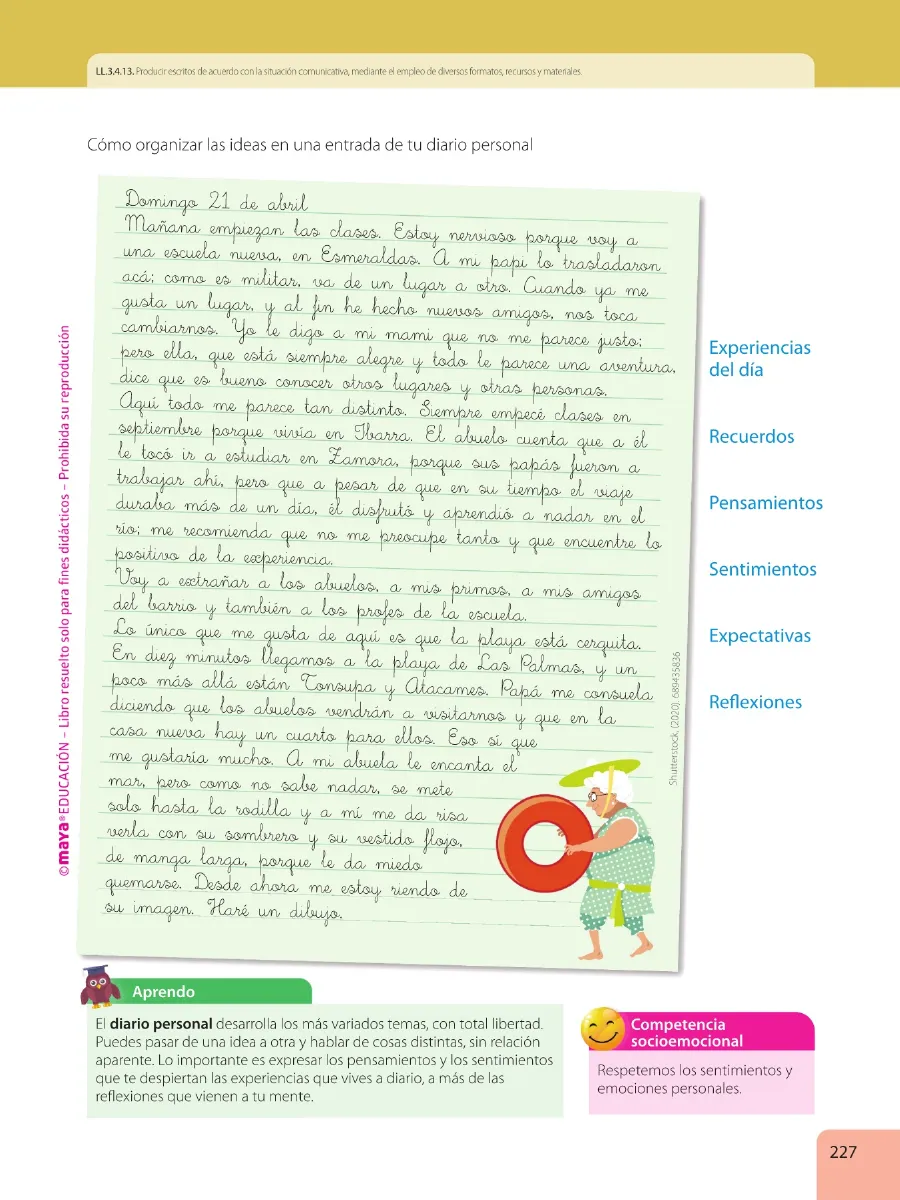 LL.3.4.13. Producir escritos de acuerdo con la situación comunicativa, mediante el empleo de diversos formatos, recursos y materiales.
Cómo organizar las ideas en una entrada de tu diario personal
Domingo 21 de abril
Mañana empiezan las clases. Estoy nervioso porque voy a
una escuela nueva, en Esmeraldas. A mi papi lo trasladaron
acá; como es militar, va de un lugar a otro. Cuando ya me
gusta un lugar, y al fin he hecho nuevos amigos, nos toca
cambiarnos. Yo le digo a mi mami que no me parece justo;
pero ella, que está siempre alegre y todo le parece una aventura,
dice que es bueno conocer otros lugares y otras personas.
Aquí todo me parece tan distinto. Siempre empecé clases en
septiembre porque vivía en Ibarra. El abuelo cuenta que a él
le tocó ir a estudiar en Zamora, porque sus papás fueron a
trabajar ahí, pero que a pesar de que en su tiempo el viaje
duraba más de un día, él disfrutó y aprendió a nadar en el
río; me recomienda que no me preocupe tanto y que encuentre lo
positivo de la experiencia.
Voy a extrañar a los abuelos, a mis primos, a mis amigos
del barrio y también a los profes de la escuela.
Lo único que me gusta de aquí es que la playa está cerquita.
En diez minutos llegamos a la playa de Las Palmas, y un
poco más allá están Tonsupa y Atacames. Papá me consuela
diciendo que los abuelos vendrán a visitarnos y que en la
casa nueva hay un cuarto para ellos. Eso sí que
me gustaría mucho. A mi abuela le encanta el
mar, pero como no sabe nadar, se mete
solo hasta la rodilla y a mí me da risa
verla con su sombrero y su vestido flojo,
de manga larga, porque le da miedo
quemarse. Desde ahora me estoy riendo de
su imagen. Haré un dibujo.
Experiencias
del día
Recuerdos
Pensamientos
Sentimientos
Expectativas
Reflexiones
Shutterstock, (2020), 689435836
© maya® EDUCACIÓN – Libro resuelto solo para fines didácticos – Prohibida su reproducción
Aprendo
El diario personal desarrolla los más variados temas, con total libertad.
Puedes pasar de una idea a otra y hablar de cosas distintas, sin relación
aparente. Lo importante es expresar los pensamientos y los sentimientos
que te despiertan las experiencias que vives a diario, a más de las
reflexiones que vienen a tu mente.
Competencia
socioemocional
Respetemos los sentimientos y
emociones personales.
227